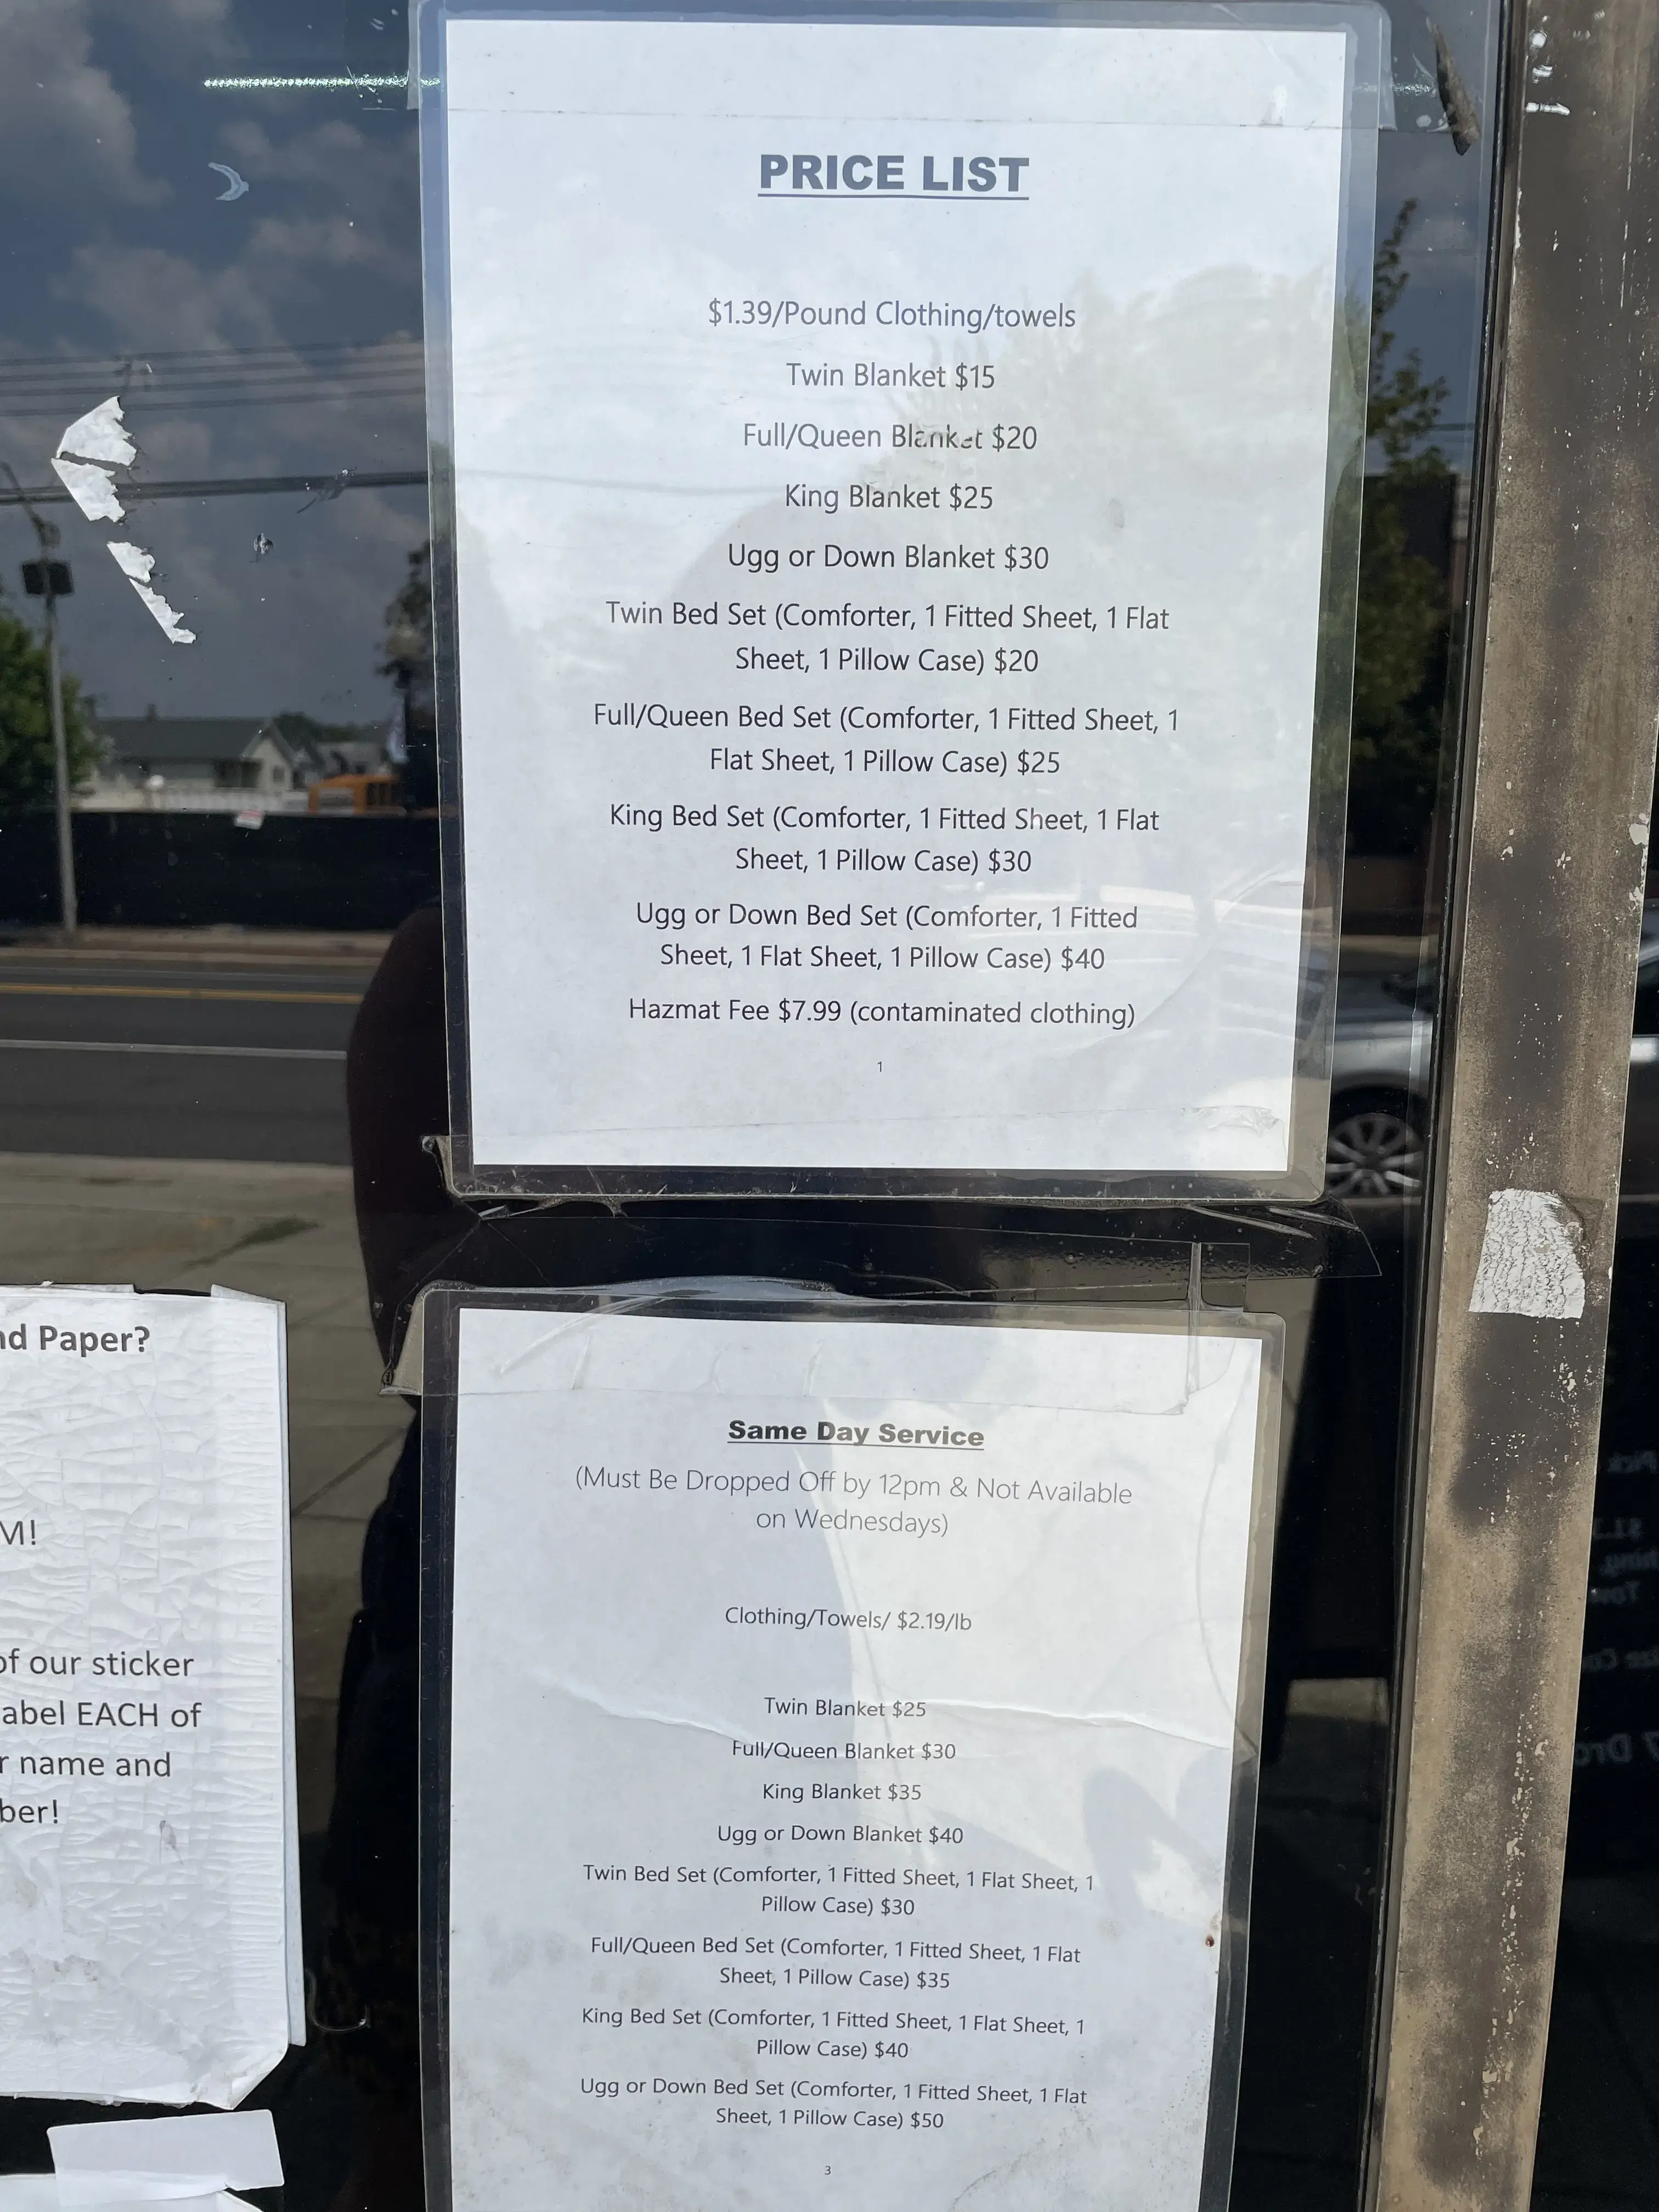 PRICE LIST
$1.39/Pound Clothing/towels
Twin Blanket $15
Full/Queen Blanket $20
King Blanket $25
Ugg or Down Blanket $30
Twin Bed Set (Comforter, 1 Fitted Sheet, 1 Flat
Sheet, 1 Pillow Case) $20
Full/Queen Bed Set (Comforter, 1 Fitted Sheet, 1
Flat Sheet, 1 Pillow Case) $25
King Bed Set (Comforter, 1 Fitted Sheet, 1 Flat
Sheet, 1 Pillow Case) $30
Ugg or Down Bed Set (Comforter, 1 Fitted
Sheet, 1 Flat Sheet, 1 Pillow Case) $40
Hazmat Fee $7.99 (contaminated clothing)
1
Same Day Service
(Must Be Dropped Off by 12pm & Not Available
on Wednesdays)
Clothing/Towels/ $2.19/lb
Twin Blanket $25
Full/Queen Blanket $30
King Blanket $35
Ugg or Down Blanket $40
Twin Bed Set (Comforter, 1 Fitted Sheet, 1 Flat Sheet, 1
Pillow Case) $30
Full/Queen Bed Set (Comforter, 1 Fitted Sheet, 1 Flat
Sheet, 1 Pillow Case) $35
King Bed Set (Comforter, 1 Fitted Sheet, 1 Flat Sheet, 1
Pillow Case) $40
Ugg or Down Bed Set (Comforter, 1 Fitted Sheet, 1 Flat
Sheet, 1 Pillow Case) $50
3
Paper?
of our sticker
EACH of
name and